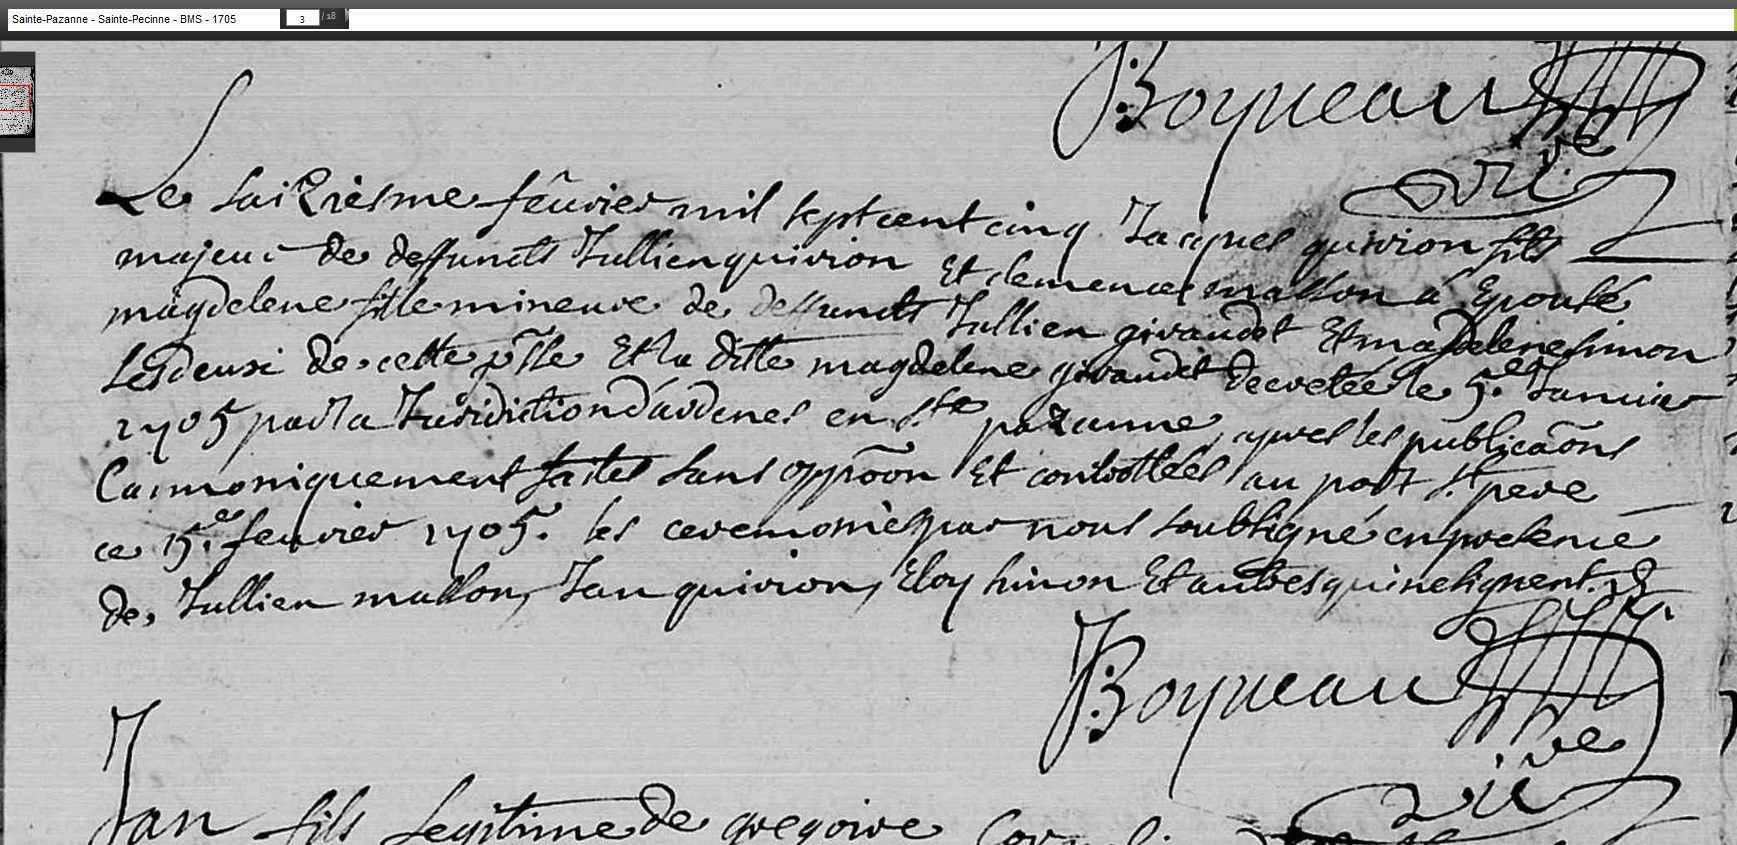 Sainte-Pazanne - Sainte-Pecinne - BMS - 1705 3 / 18
Boyneau
Le saiziesme fêuvier mil septcent cinq Jacques guivion fils
majeur de deffuncts Jullien guivion Et clemence masson á Epousé
magdelene fille mineure de deffuncts Jullien giraudet Et magdelene simon
Lesdeuxi de cette psse Et la ditte magdelene giraudet decretée le 5.e Janvier
1705 par la Jurisdiction d'ardenes en Ste pazanne, apres les publicaons
Cannoniquement faites sans oppoon Et controllées au port St pere
ce 15.e fevrier 1705. les ceremonies par nous soubsigné en presence
de, Jullien masson, Jan guivion, Eloy simon Et autres qui ne signent.
Boyneau
Jan fils Legitime de gregoire